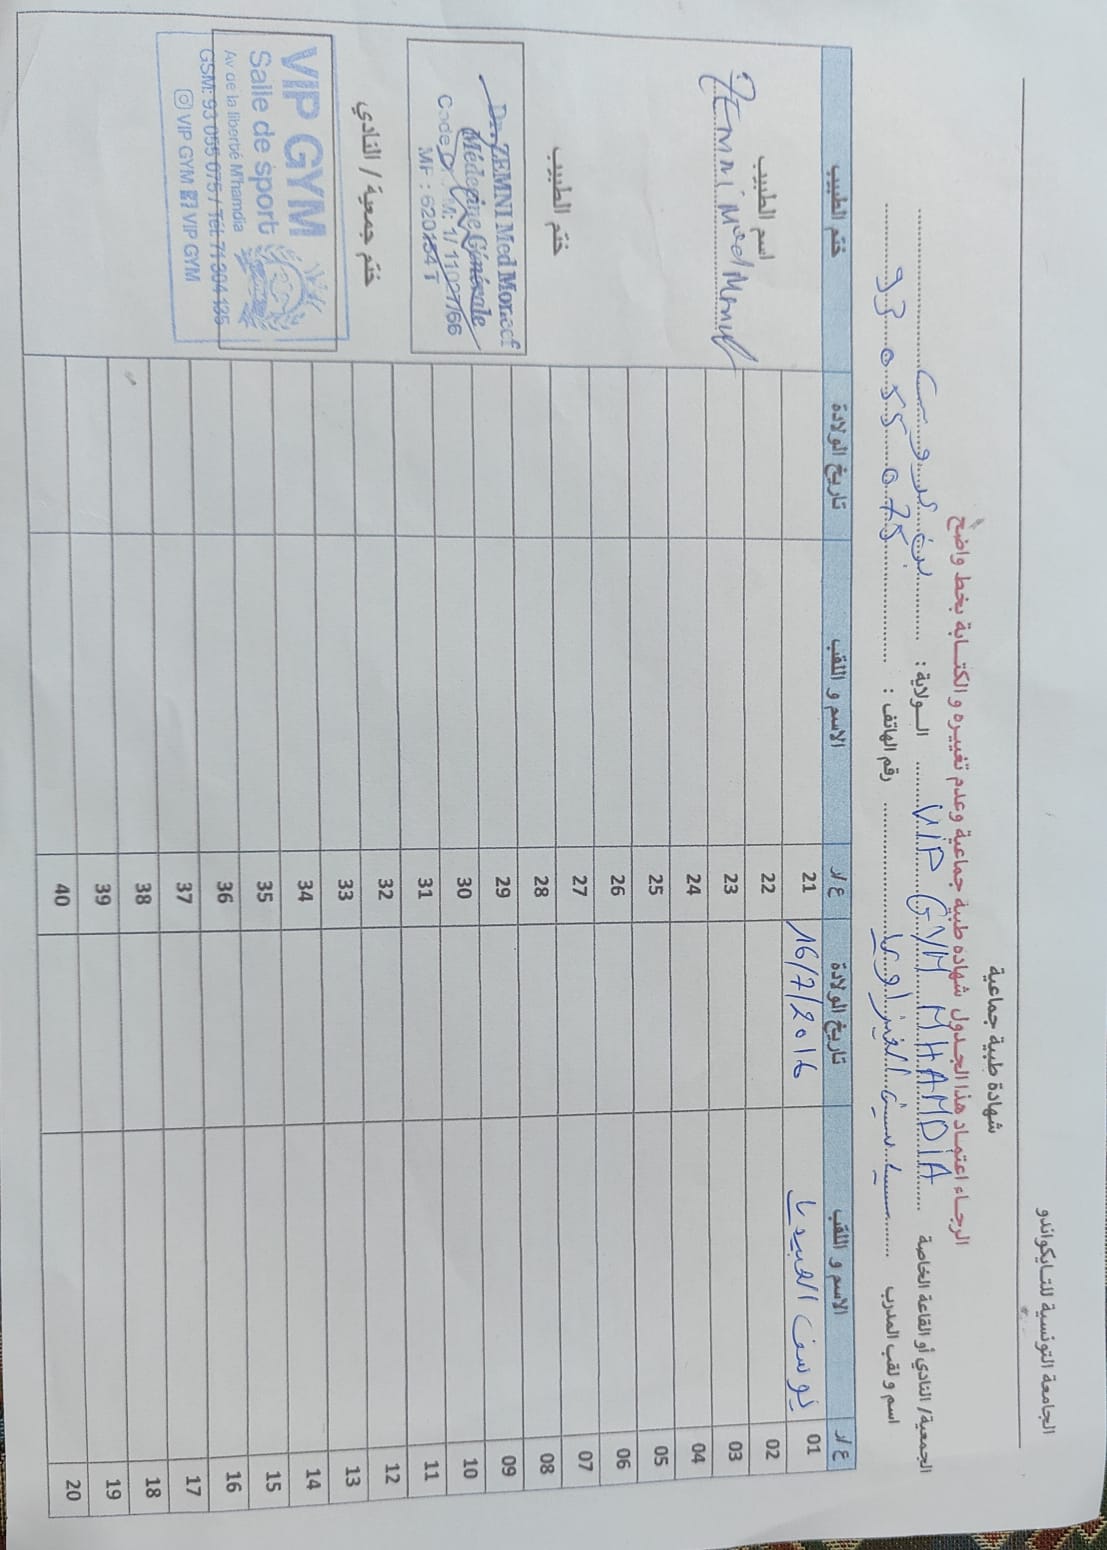 الجامعة التونسية للتايكواندو
شهادة طبية جماعية
الرجاء اعتماد هذا الجدول شهادة طبية جماعية وعدم تغييره والكتابة بخط واضح
الجمعية/ النادي أو القاعة الخاصة VIP GYM MHAMDIA الولاية : بن عروس
اسم و لقب المدرب رقم الهاتف : 93 055 075
ع/ر الاسم و اللقب تاريخ الولادة ع/ر الاسم و اللقب تاريخ الولادة ختم الطبيب
01 يوسف العبيدي 16/7/2016 21
02 22
03 23
04 24
05 25
06 26
07 27
08 28
09 29
10 30
11 31
12 32
13 33
14 34
15 35
16 36
17 37
18 38
19 39
20 40
اسم الطبيب
Zemni
ختم الطبيب
Dr. ZEMNI Med Moncef
Médecine Générale
ختم جمعية / النادي
VIP GYM
Salle de sport
Av de la liberté M'hamdia
GSM: 93 055 075 / Tél: 71 304 135
VIP GYM VIP GYM